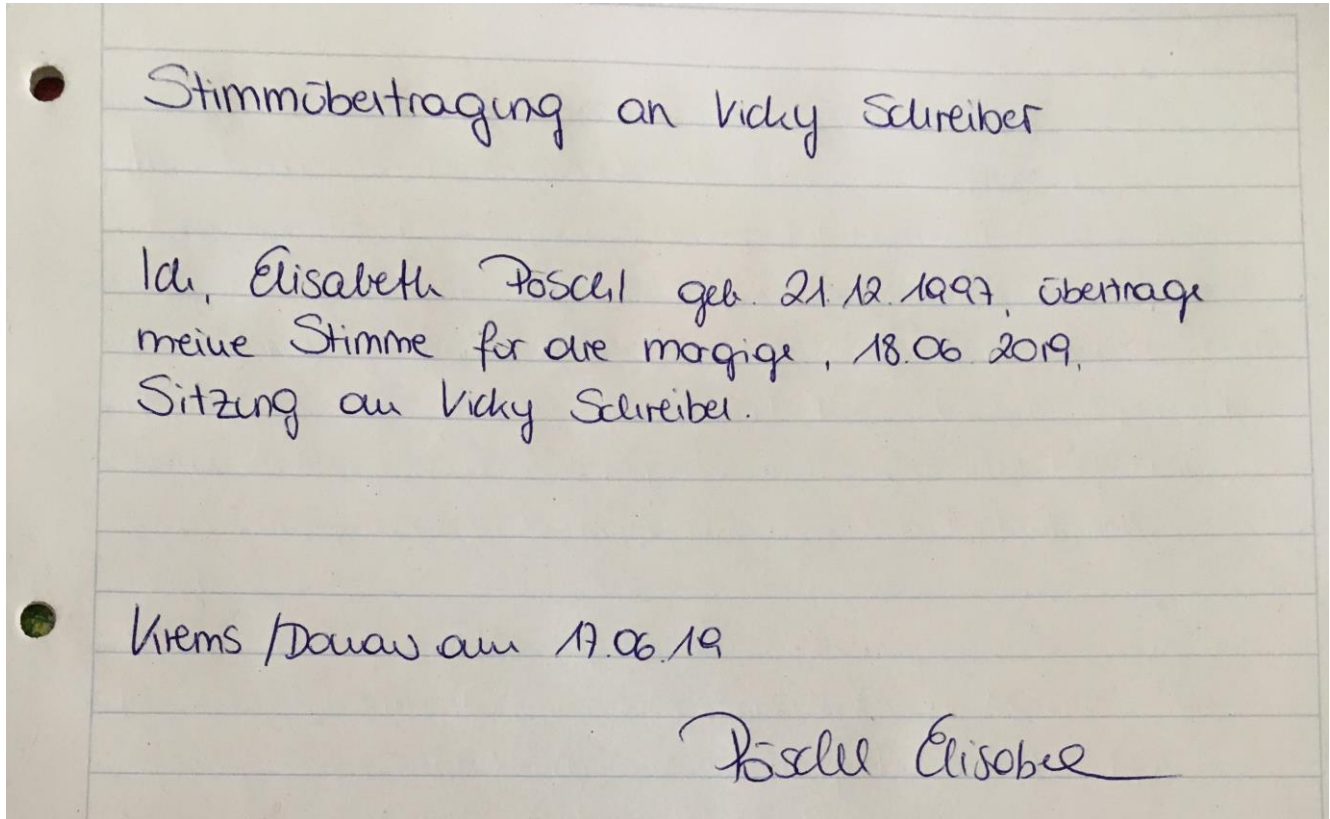 Stimmübertragung an Vicky Schreiber
Ich, Elisabeth Pöschl geb. 21.12.1997, übertrage
meine Stimme für die morgige, 18.06.2019,
Sitzung an Vicky Schreiber.
Krems/Donau am 17.06.19
Pöschl Elisabeth